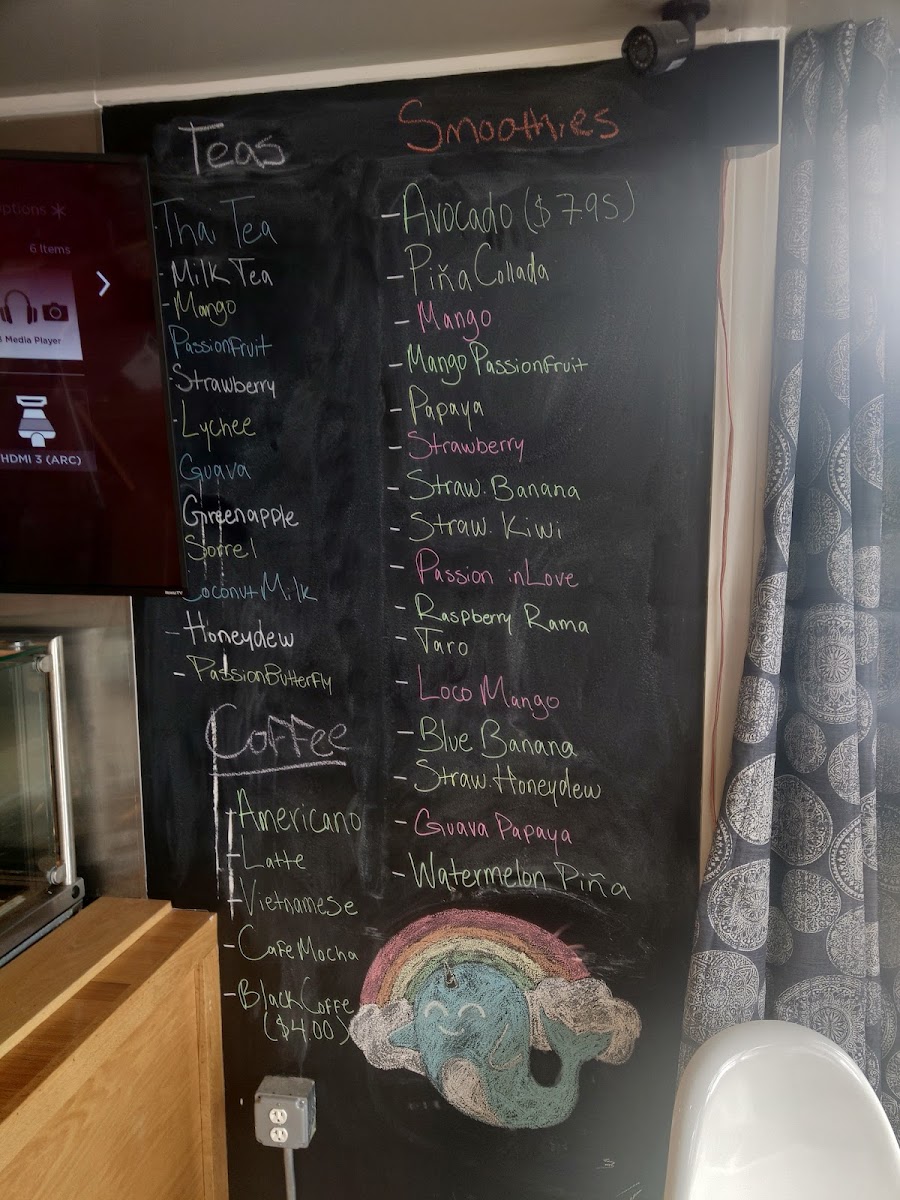 Teas
Thai Tea
- Milk Tea
- Mango
PassionFruit
- Strawberry
- Lychee
Guava
Greenapple
Sorrel
Coconut Milk
- Honeydew
- PassionButterfly
Coffee
- Americano
- Latte
- Vietnamese
- Cafe Mocha
- Black Coffe
($4.00)
Smoothies
- Avocado ($7.95)
- Piña Collada
- Mango
- Mango PassionFruit
- Papaya
- Strawberry
- Straw. Banana
- Straw. Kiwi
- Passion inLove
- Raspberry Rama
- Taro
- Loco Mango
- Blue Banana
- Straw. Honeydew
- Guava Papaya
- Watermelon Piña
ptions *
6 Items
Media Player
HDMI 3 (ARC)
Roku TV